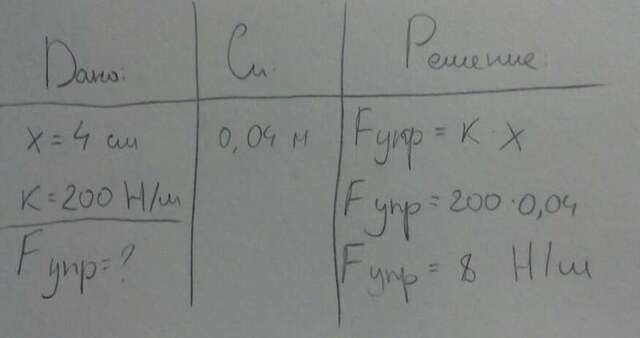 Дано:
Си:
Решение:
x = 4 см
0,04 м
Fупр = K · x
K = 200 Н/м
Fупр = 200 · 0,04
Fупр = ?
Fупр = 8 Н/м